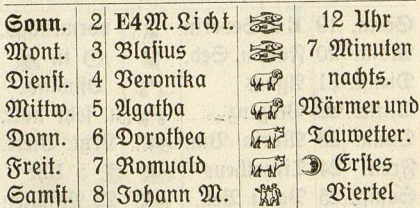 Sonn. 2 E4M. Licht. 12 Uhr
Mont. 3 Blasius 7 Minuten
Dienst. 4 Veronika nachts.
Mittw. 5 Agatha Wärmer und
Donn. 6 Dorothea Tauwetter.
Freit. 7 Romuald Erstes
Samst. 8 Johann M. Viertel